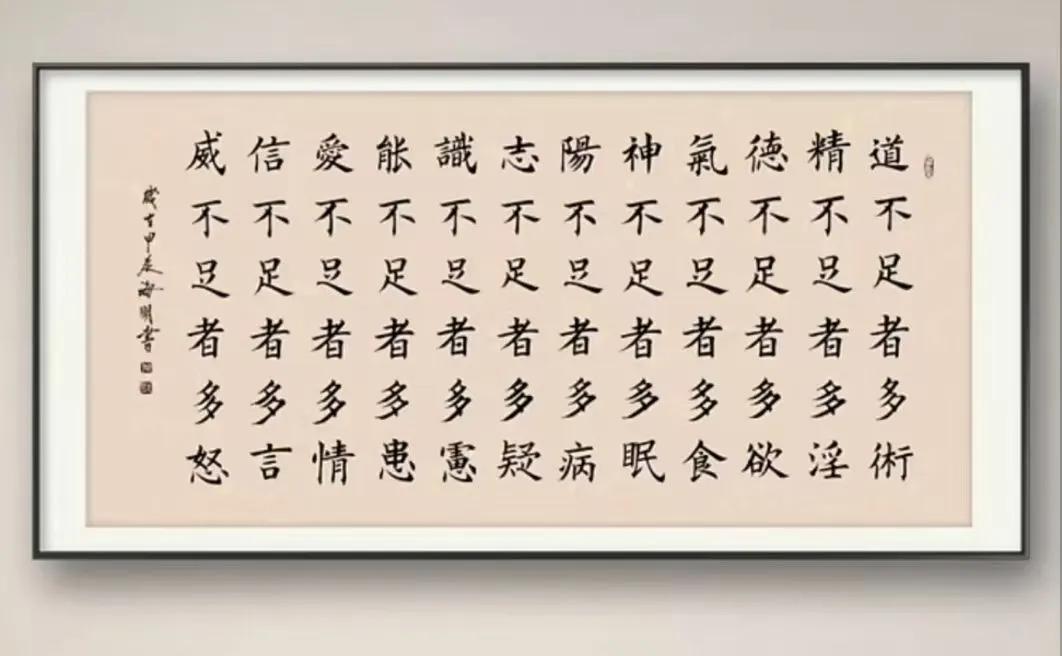 道不足者多術
精不足者多淫
德不足者多欲
氣不足者多食
神不足者多眠
陽不足者多病
志不足者多疑
識不足者多慮
能不足者多患
愛不足者多情
信不足者多言
威不足者多怒
歲在甲辰海明書